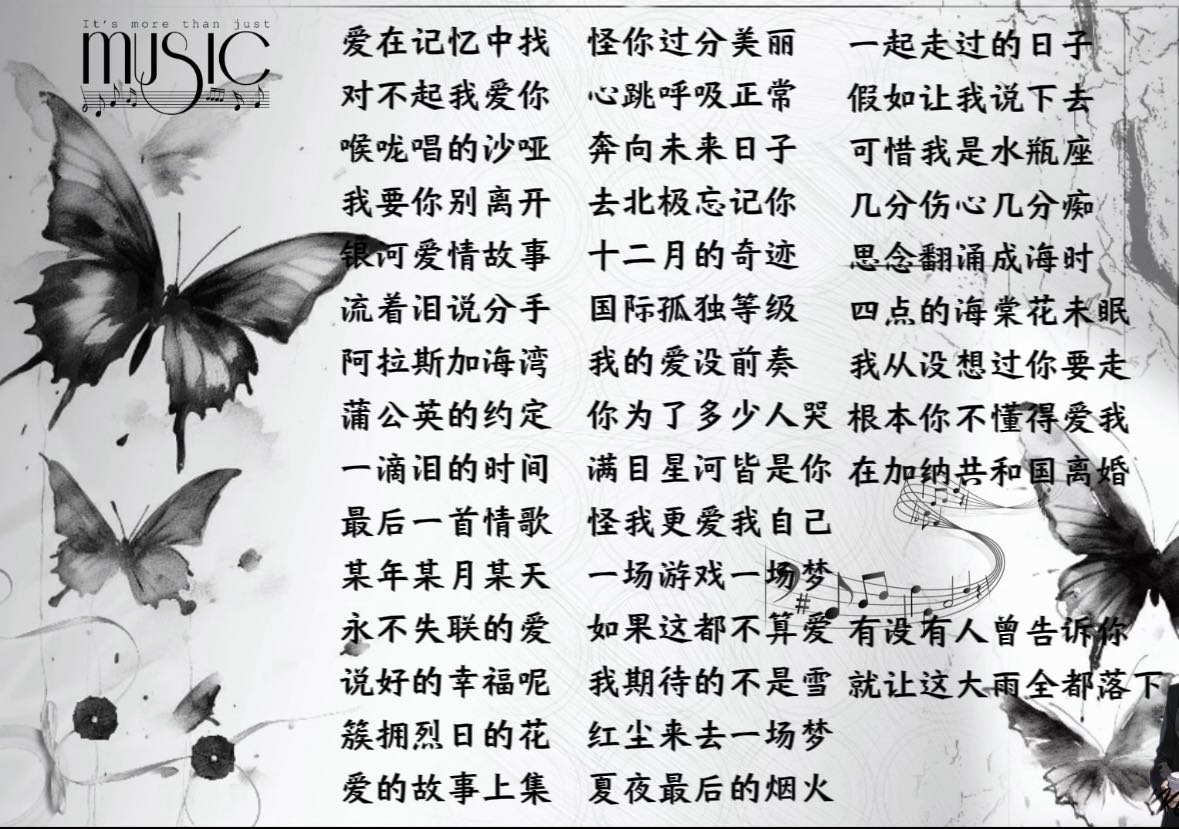 It's more than just
MUSIC
爱在记忆中找
对不起我爱你
喉咙唱的沙哑
我要你别离开
银河爱情故事
流着泪说分手
阿拉斯加海湾
蒲公英的约定
一滴泪的时间
最后一首情歌
某年某月某天
永不失联的爱
说好的幸福呢
簇拥烈日的花
爱的故事上集
怪你过分美丽
心跳呼吸正常
奔向未来日子
去北极忘记你
十二月的奇迹
国际孤独等级
我的爱没前奏
你为了多少人哭
满目星河皆是你
怪我更爱我自己
一场游戏一场梦
如果这都不算爱
我期待的不是雪
红尘来去一场梦
夏夜最后的烟火
一起走过的日子
假如让我说下去
可惜我是水瓶座
几分伤心几分痴
思念翻涌成海时
四点的海棠花未眠
我从没想过你要走
根本你不懂得爱我
在加纳共和国离婚
有没有人曾告诉你
就让这大雨全都落下